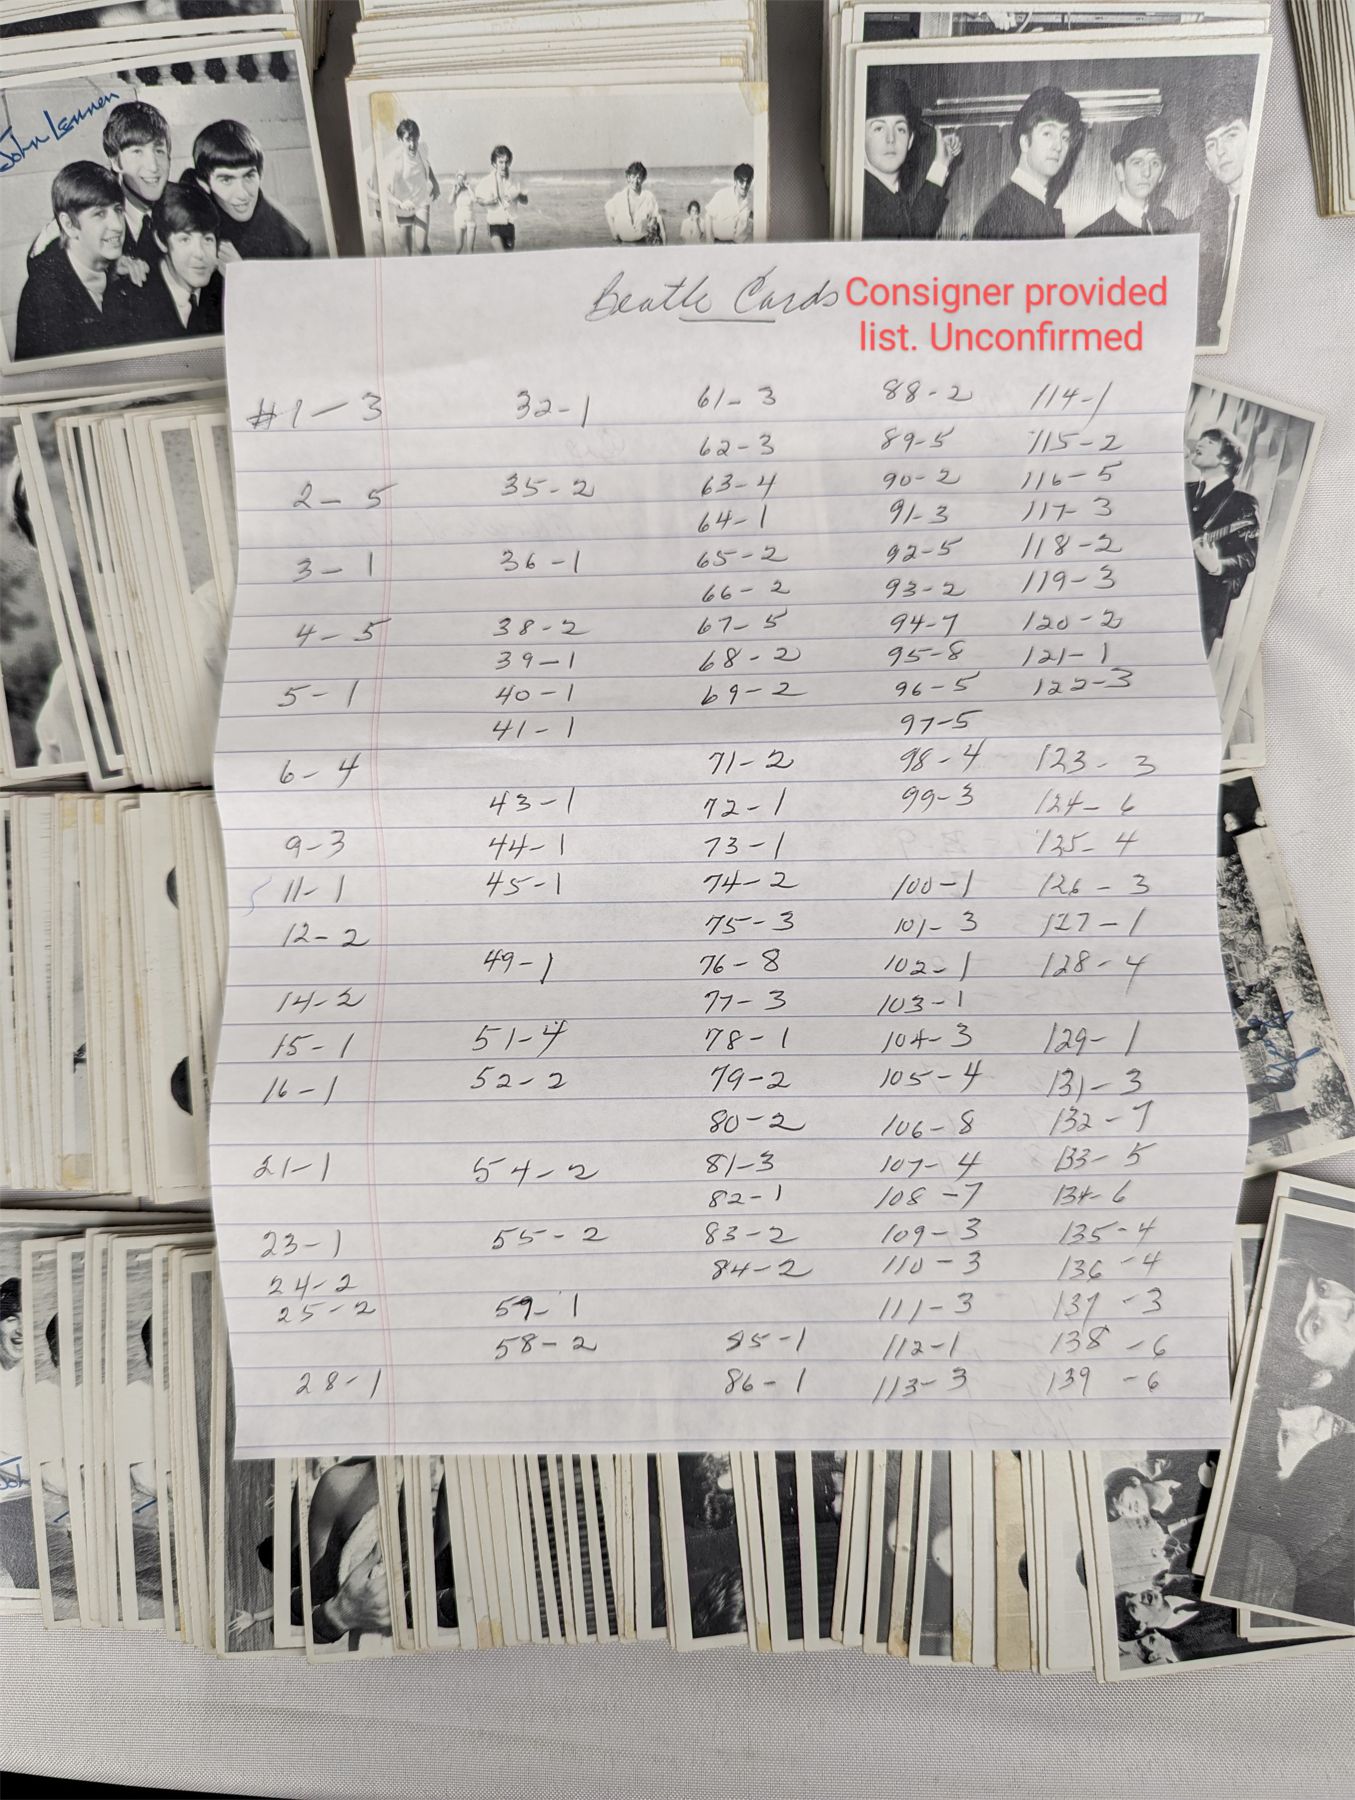 John Lennon
Beatle Cards
Consigner provided
list. Unconfirmed
#1-3
2-5
3-1
4-5
5-1
6-4
9-3
11-1
12-2
14-2
15-1
16-1
21-1
23-1
24-2
25-2
28-1
32-1
35-2
36-1
38-2
39-1
40-1
41-1
43-1
44-1
45-1
49-1
51-4
52-2
54-2
55-2
59-1
58-2
61-3
62-3
63-4
64-1
65-2
66-2
67-5
68-2
69-2
71-2
72-1
73-1
74-2
75-3
76-8
77-3
78-1
79-2
80-2
81-3
82-1
83-2
84-2
85-1
86-1
88-2
89-5
90-2
91-3
92-5
93-2
94-7
95-8
96-5
97-5
98-4
99-3
100-1
101-3
102-1
103-1
104-3
105-4
106-8
107-4
108-7
109-3
110-3
111-3
112-1
113-3
114-1
115-2
116-5
117-3
118-2
119-3
120-2
121-1
122-3
123-3
124-6
125-4
126-3
127-1
128-4
129-1
131-3
132-7
133-5
134-6
135-4
136-4
137-3
138-6
139-6